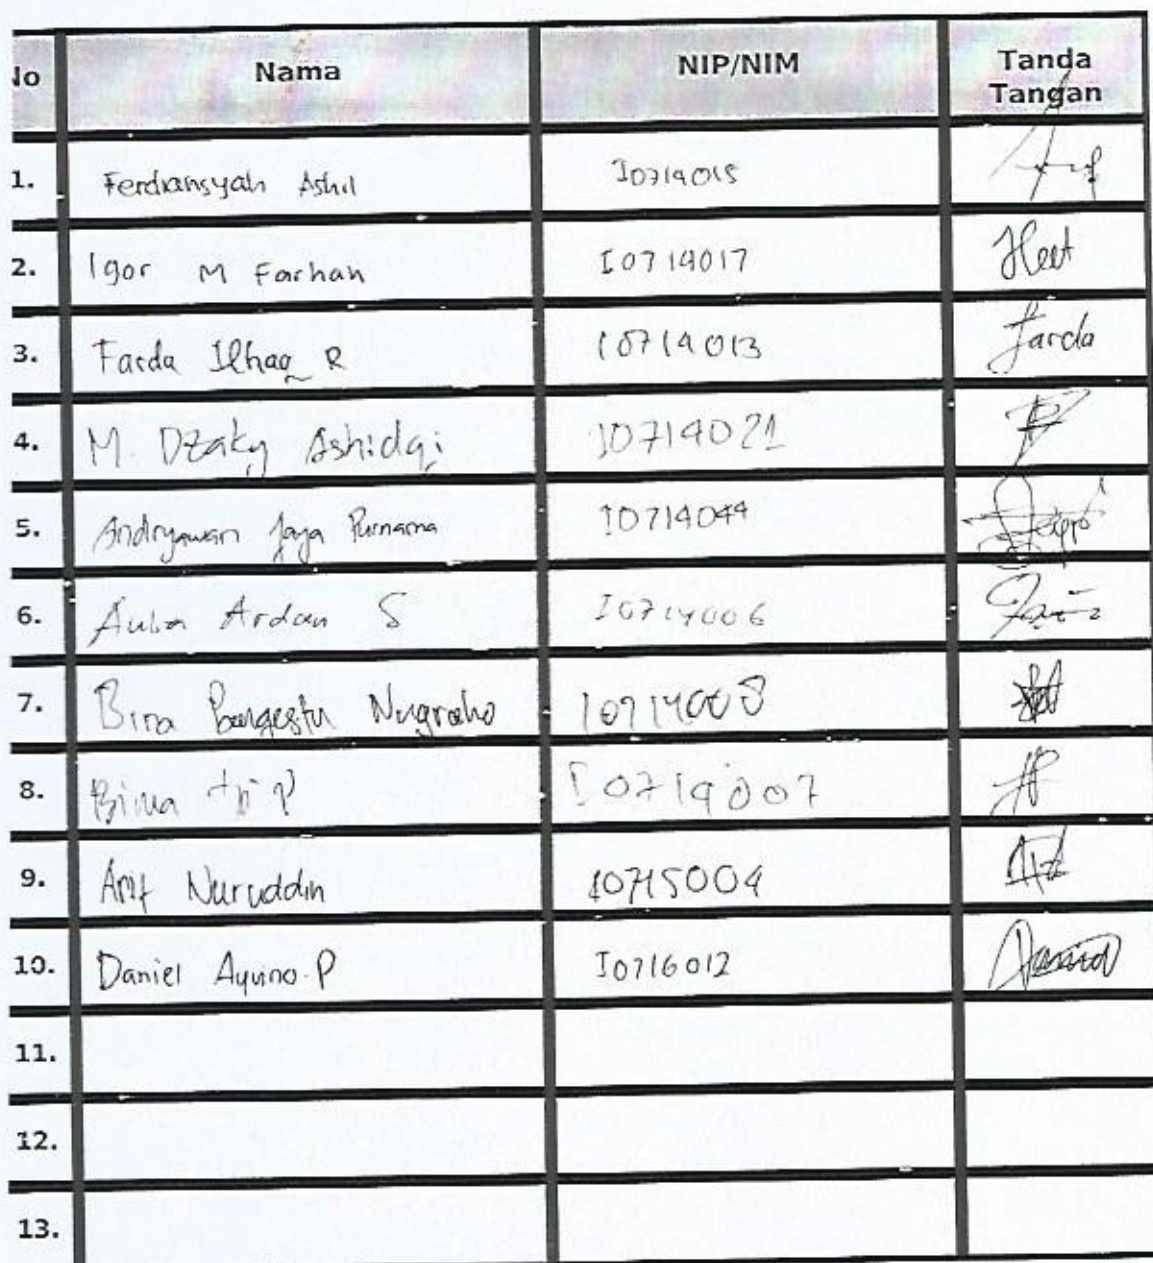 No Nama NIP/NIM Tanda Tangan
1. Ferdiansyah Ashil I0714015
2. Igor M Farhan I0714017 Heet
3. Farda Ilhaq R I0714013 Farda
4. M. Dzaky Ashidqi I0714021
5. Andryawan Jaya Purnama I0714044
6. Aulia Ardan S I0714006
7. Bina Pangestu Nugroho I0714008
8. Bima tri P I0714007
9. Arif Nuruddin I0715004
10. Daniel Aquino.P I0716012
11.
12.
13.